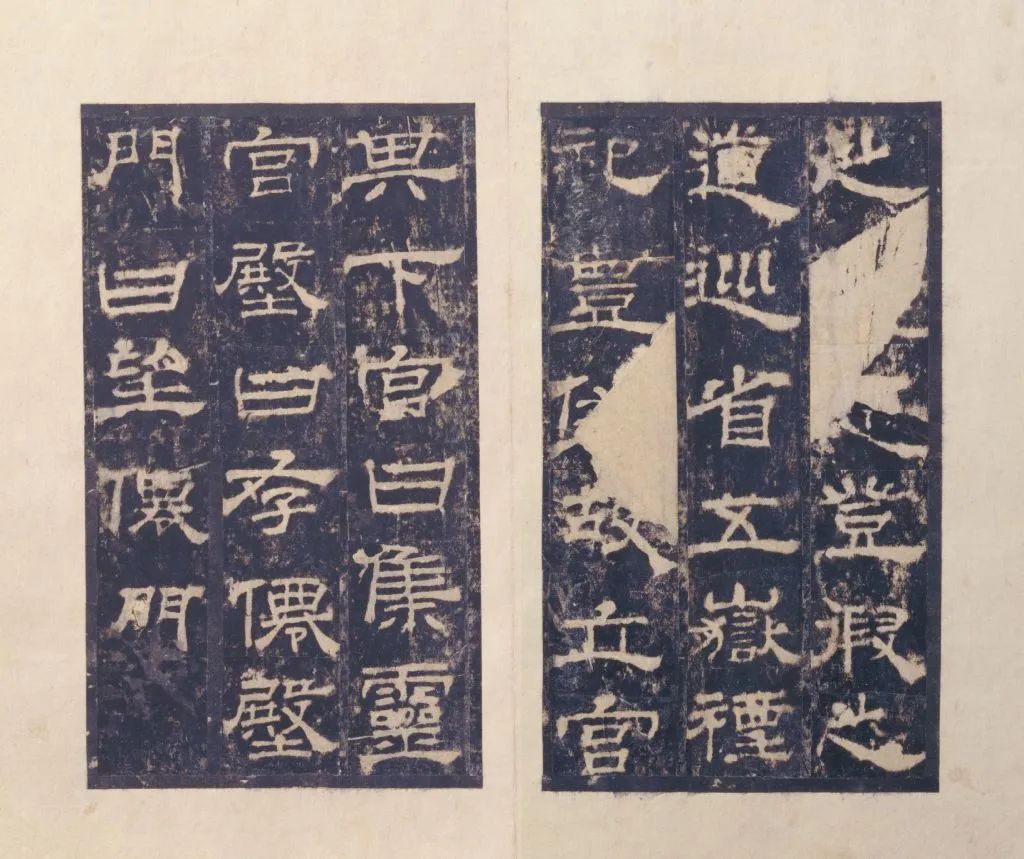 之登假之
道巡省五嶽禋
祀豐故立宮
其下宮曰集靈
宮殿曰存僊殿
門曰望僊門